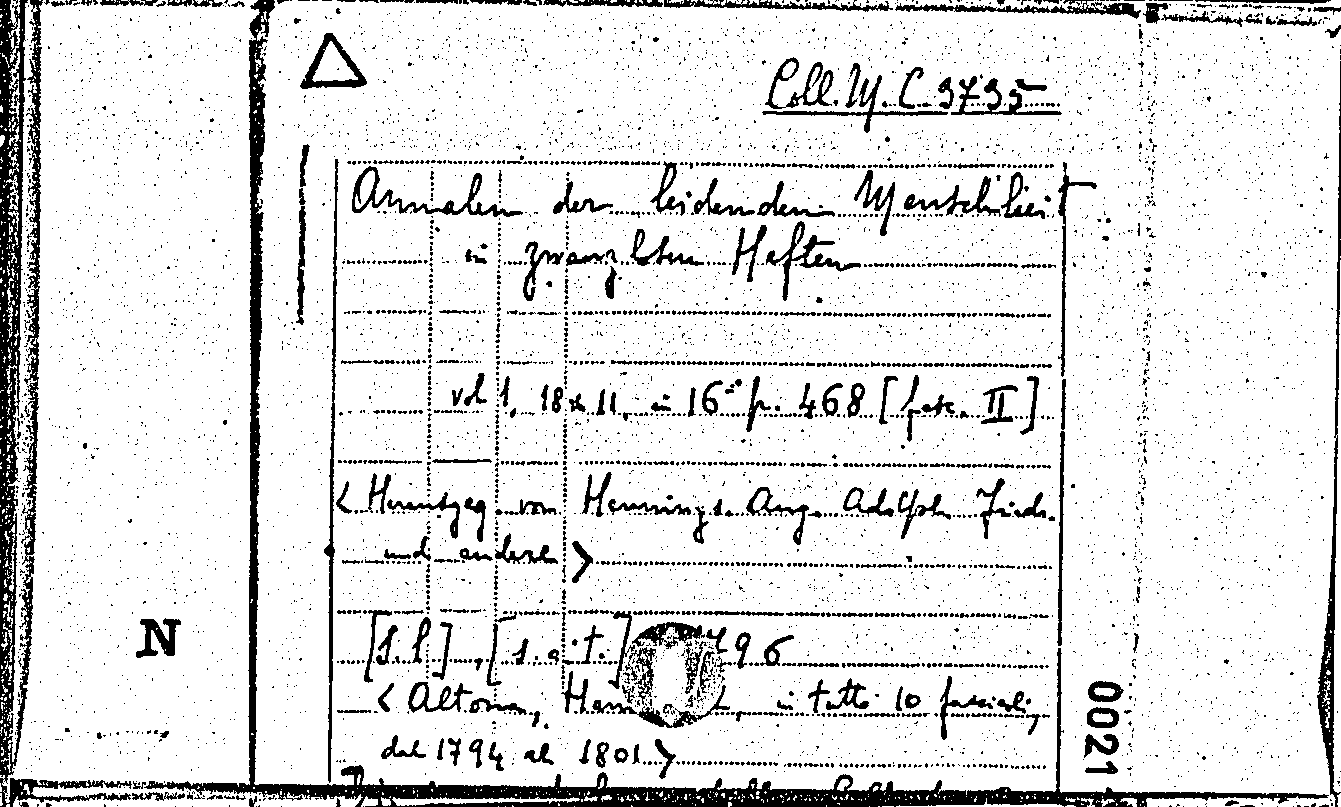 Coll. M. C. 3735
Annalen der leidenden Menschheit
in zwanglosen Heften
vol 1, 18x11, in 16° p. 468 [fasc. II]
< Herausgeg. von Hennings. Aug. Adolph. Friedr.
und andere >
[s.l], [s. a. t.] 1796
< Altona, in tutto 10 fascicoli,
dal 1794 al 1801 >
N
0021